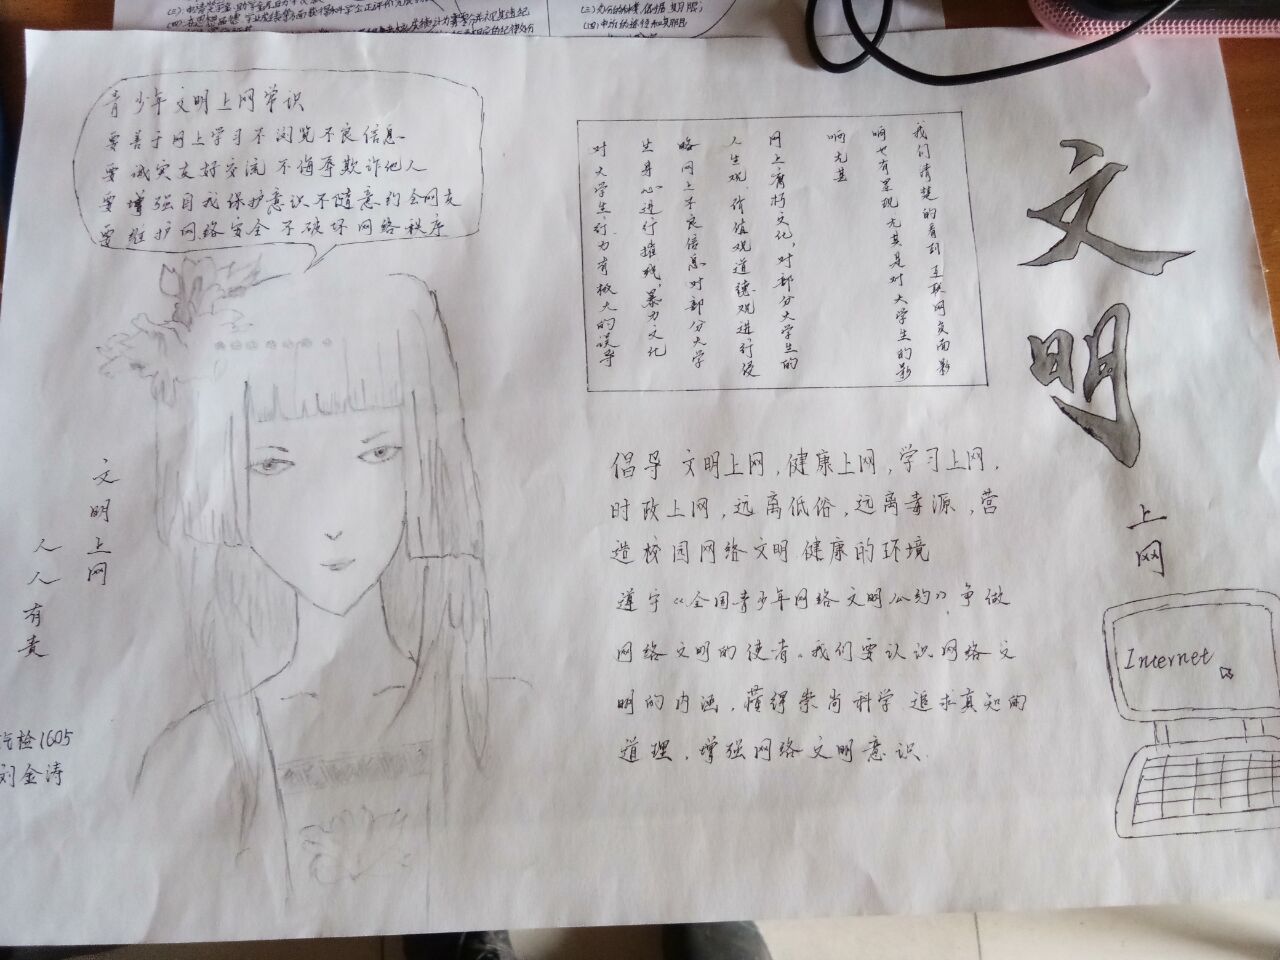 青少年文明上网常识
要善于网上学习不浏览不良信息
要诚实友好交流 不侮辱欺诈他人
要增强自我保护意识不随意约会网友
要维护网络安全 不破坏网络秩序
我们清楚的看到互联网负面影
响也有呈现 尤其是对大学生的影
响尤甚
网上腐朽文化，对部分大学生的
人生观、价值观道德观进行侵
略 网上不良信息对部分大学
生身心进行摧残，暴力文化
对大学生行为有极大的误导
文明
上网
Internet
倡导 文明上网，健康上网，学习上网，
时政上网，远离低俗，远离毒源，营
造校园网络文明健康的环境
遵守《全国青少年网络文明公约》，争做
网络文明的使者。我们要认识网络文
明的内涵，懂得崇尚科学 追求真知的
道理，增强网络文明意识.
文明上网
人人有责
汽检1605
刘金涛